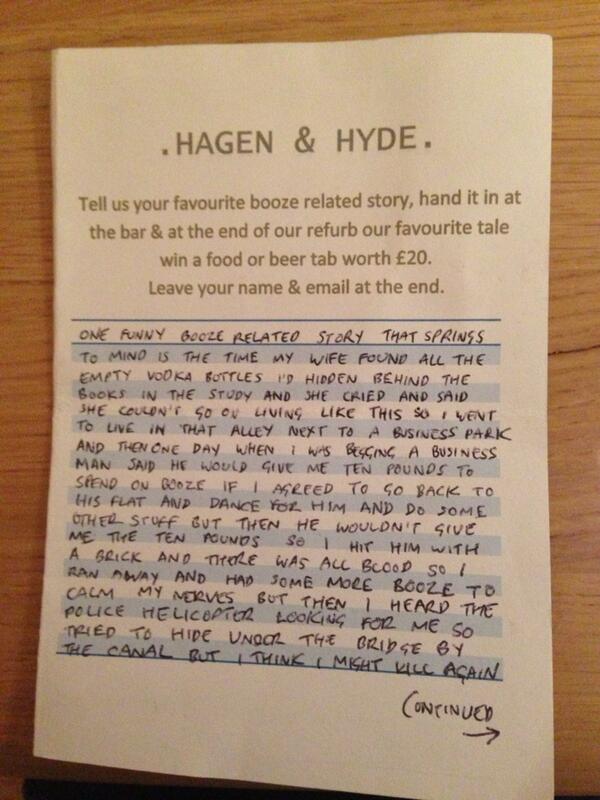 . HAGEN & HYDE .
Tell us your favourite booze related story, hand it in at
the bar & at the end of our refurb our favourite tale
win a food or beer tab worth £20.
Leave your name & email at the end.
ONE FUNNY BOOZE RELATED STORY THAT SPRINGS
TO MIND IS THE TIME MY WIFE FOUND ALL THE
EMPTY VODKA BOTTLES I'D HIDDEN BEHIND THE
BOOKS IN THE STUDY AND SHE CRIED AND SAID
SHE COULDN'T GO ON LIVING LIKE THIS SO I WENT
TO LIVE IN THAT ALLEY NEXT TO A BUSINESS PARK
AND THEN ONE DAY WHEN I WAS BEGGING A BUSINESS
MAN SAID HE WOULD GIVE ME TEN POUNDS TO
SPEND ON BOOZE IF I AGREED TO GO BACK TO
HIS FLAT AND DANCE FOR HIM AND DO SOME
OTHER STUFF BUT THEN HE WOULDN'T GIVE
ME THE TEN POUNDS SO I HIT HIM WITH
A BRICK AND THERE WAS ALL BLOOD SO I
RAN AWAY AND HAD SOME MORE BOOZE TO
CALM MY NERVES BUT THEN I HEARD THE
POLICE HELICOPTER LOOKING FOR ME SO
TRIED TO HIDE UNDER THE BRIDGE BY
THE CANAL BUT I THINK I MIGHT KILL AGAIN
CONTINUED
→